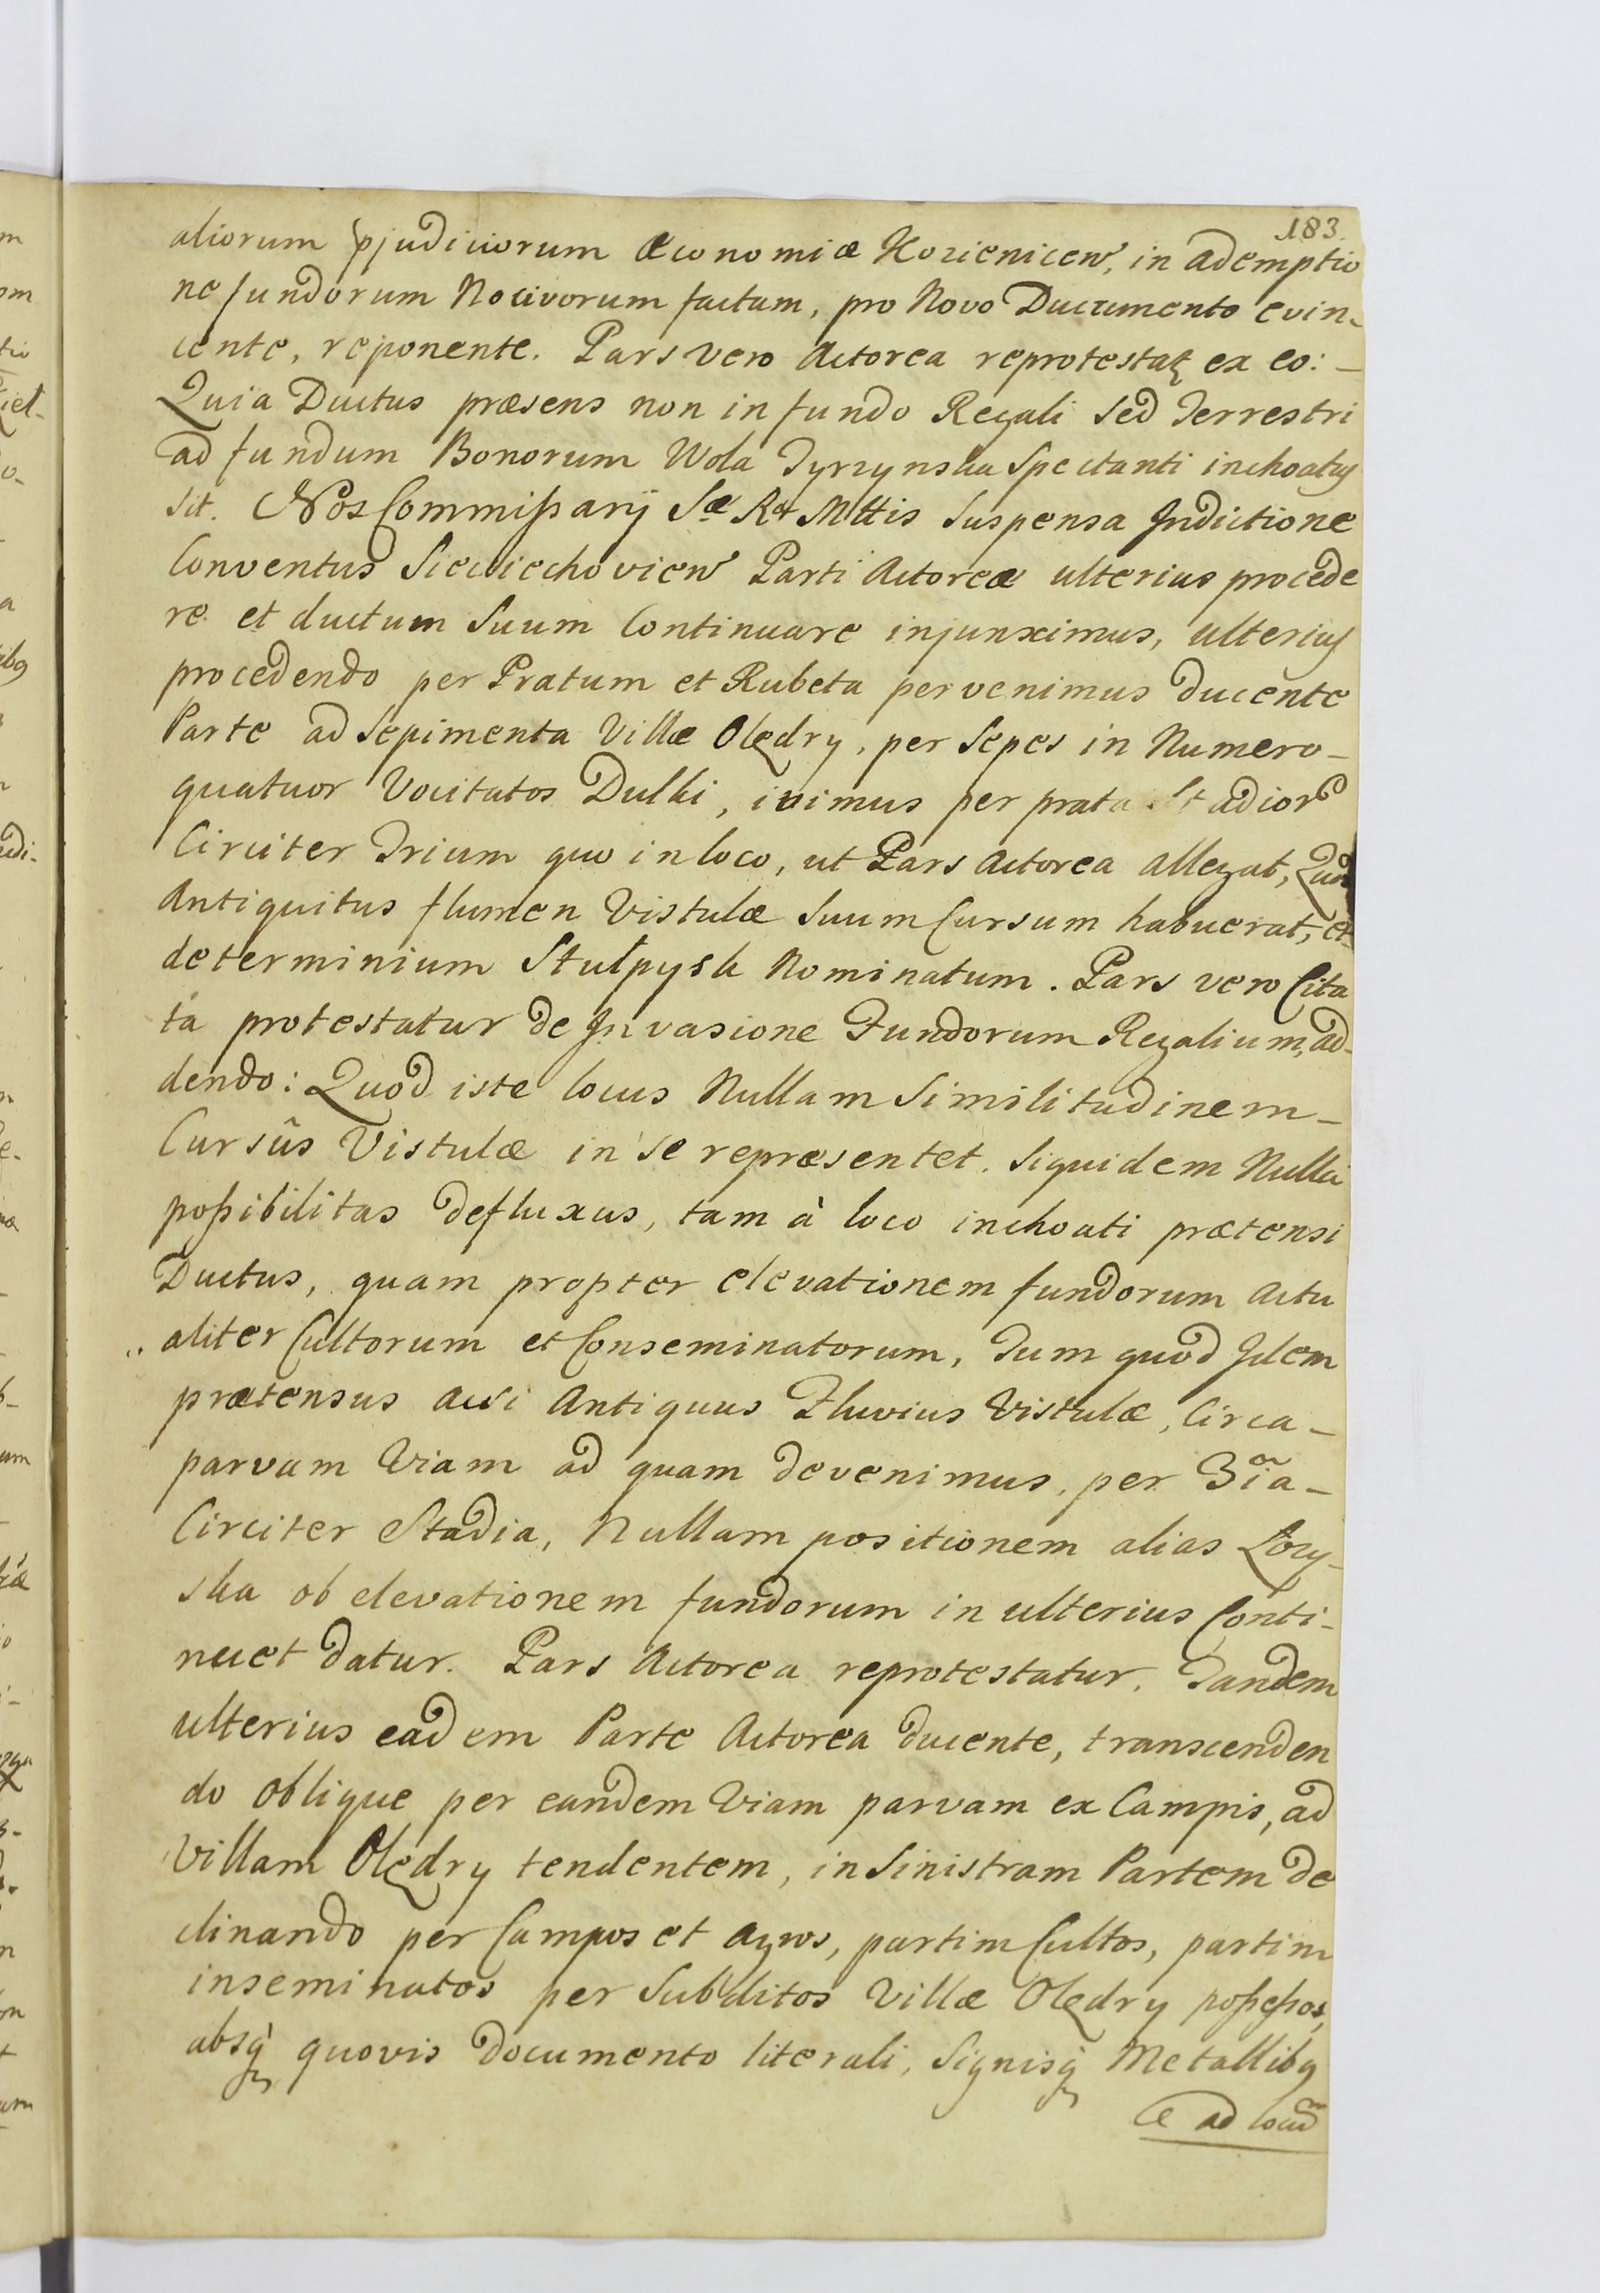 183.
aliorum pjudiciorum Œconomiæ Kozienicen, in ademptio
ne fundorum Nocivorum factam, pro Novo Ducumento evin-
cente, reponente. Pars vero Actorea reprotestat ex eo: -
Quia Ductus præsens non in fundo Regali sed Terrestri
ad fundum Bonorum Wola Tyrzynska Spectanti inchoatus
sit. Nos Commissarij Sæ Ræ Mttis suspensa Indictione
Conventus Sieciechovien Parti Actoreæ ulterius procede
re et ductum Suum Continuare injunximus, ulterius
procedendo per Pratum et Rubeta pervenimus ducente
Parte ad Sepimenta Villæ Olędry, per Sepes in Numero -
quatuor Vocitatos Dulki, ivimus per prata Stadior
Circiter Trium quo in loco, ut Pars Actorea allegat, Quod
Antiquitus flumen Vistulæ Suum Cursum habuerat, et
determinium Stulpysk Nominatum. Pars vero Cita
ta protestatur de Invasione Fundorum Regalium, ad-
dendo: Quod iste locus Nullam Similitudinem -
Cursûs Vistulæ in se repræsentet. Siquidem Nulla
possibilitas defluxus, tam à loco inchoati prætensi
Ductus, quam propter elevationem fundorum actu
aliter Cultorum et Conseminatorum, Tum quod Idem
prætensus acsi Antiquus Fluvius Vistulæ, Circa -
parvam Viam ad quam devenimus, per 3ia -
Circiter Stadia, Nullam positionem alias Łozy-
ska ob elevationem fundorum in ulterius Conti-
nuet datur. Pars Actorea reprotestatur. Tandem
ulterius eadem Parte Actorea ducente, transcenden
do oblique per eandem Viam parvam ex Campis, ad
Villam Olędry tendentem, in Sinistram Partem de
clinando per Campos et agros, partim Cultos, partim
inseminatos per Subditos Villæ Olędry possessos,
absq quovis documento literali, Signisq Metallibq
e ad locu